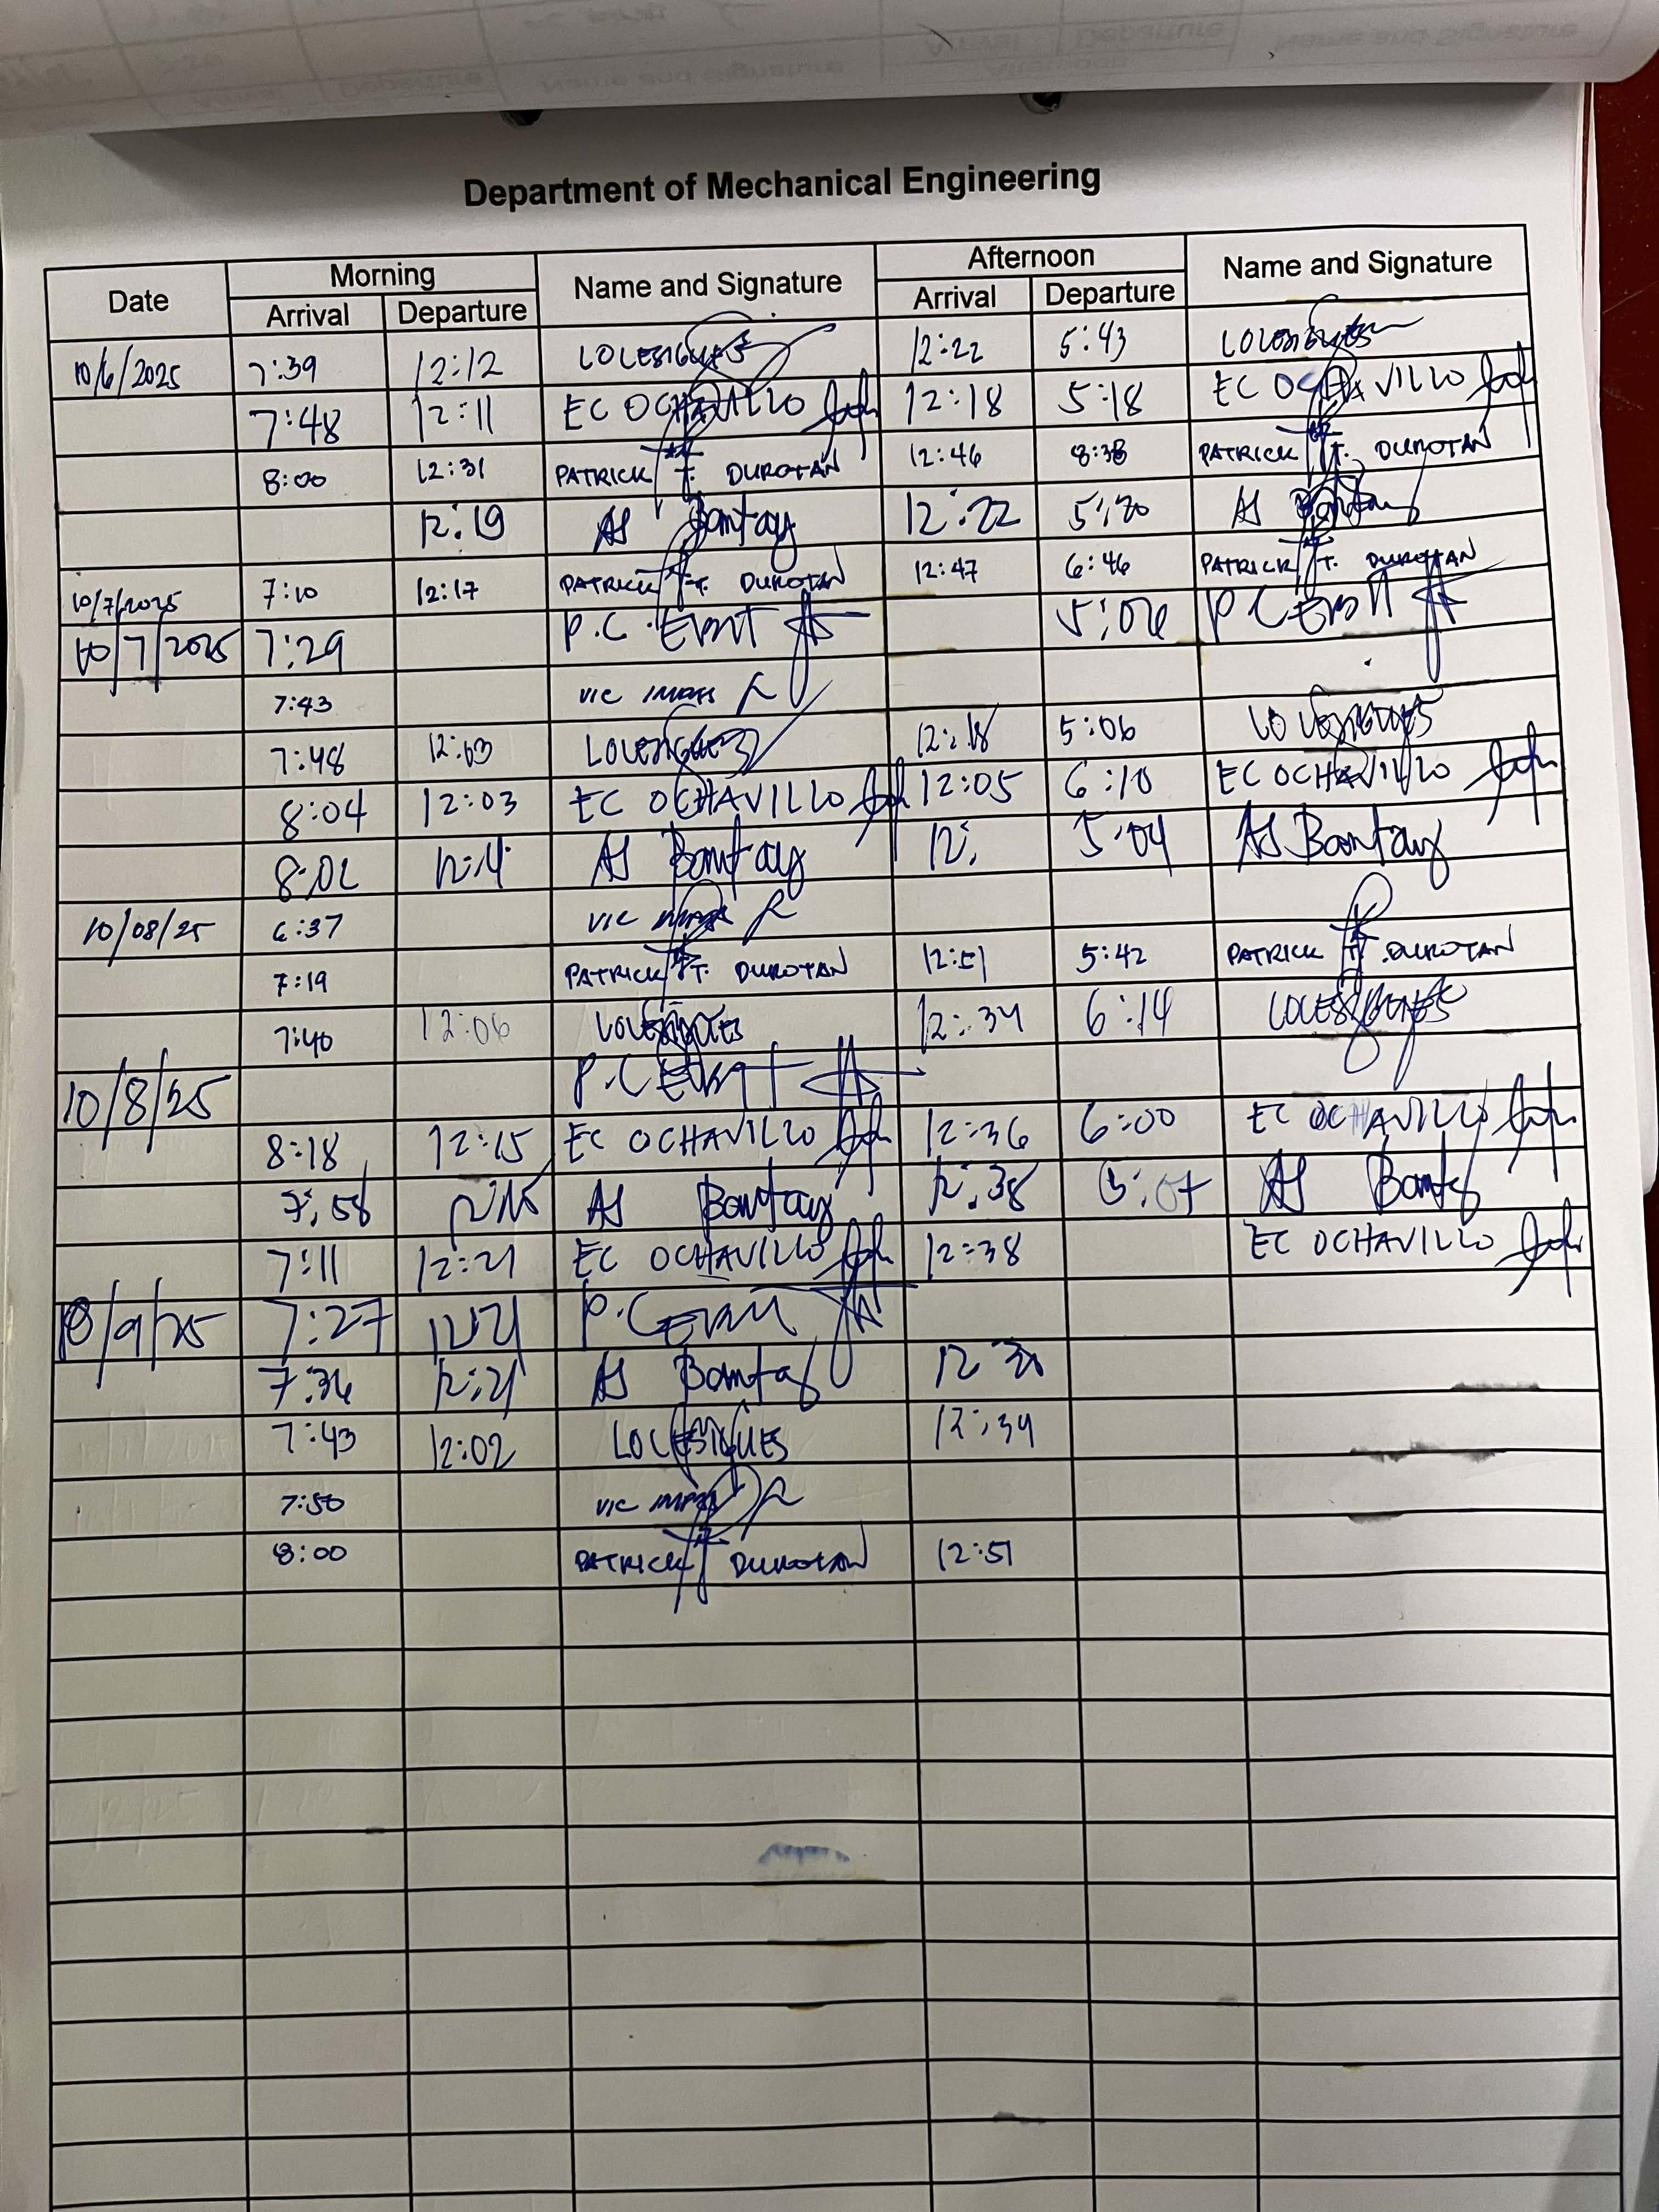 Department of Mechanical Engineering
Date Morning Name and Signature Afternoon Name and Signature
Arrival Departure Arrival Departure
10/6/2025 7:39 12:12 LOLESIGUES 12:22 5:43
7:48 12:11 EC OCHAVILLO 12:18 5:18 EC OCHAVILLO
8:00 12:31 PATRICK T. DUROTAN 12:46 8:38 PATRICK T. DUROTAN
12:19 AS Bantay 12:22 5:20 AS
10/7/2025 7:10 12:17 PATRICK T. DUROTAN 12:47 6:46 PATRICK T. DUROTAN
10/7/2025 7:29 P.C. 5:06 P C
7:43 VIC
7:48 12:03 12:18 5:06
8:04 12:03 EC OCHAVILLO 12:05 6:10 EC OCHAVILLO
8:02 AS Bantay 12: 5:04 AS Bantay
10/08/25 6:37 VIC
7:19 PATRICK T. DUROTAN 12:51 5:42 PATRICK T. DUROTAN
7:40 12:06 12:34 6:14
10/8/25 P.C
8:18 12:15 EC OCHAVILLO 12:36 6:00 EC OCHAVILLO
7:58 AS Bantay 12:38 5:07 AS
7:11 12:21 EC OCHAVILLO 12:38 EC OCHAVILLO
10/9/25 7:27 1221 P.C
7:36 12:21 AS Bantay
7:43 12:02 LOLESIGUES 12:34
7:50 VIC
8:00 PATRICK DUROTAN 12:51